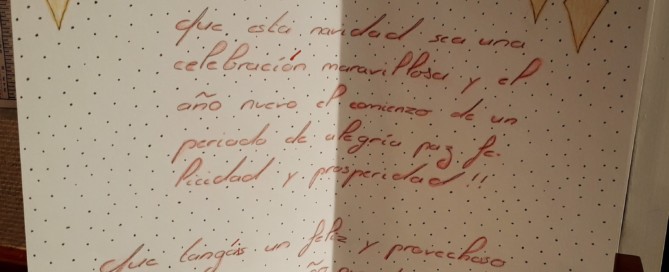 Que esta navidad sea una
celebración maravillosa y el
año nuevo el comienzo de un
periodo de alegría paz fe-
licidad y prosperidad!!
Que tangáis un feliz y provechoso